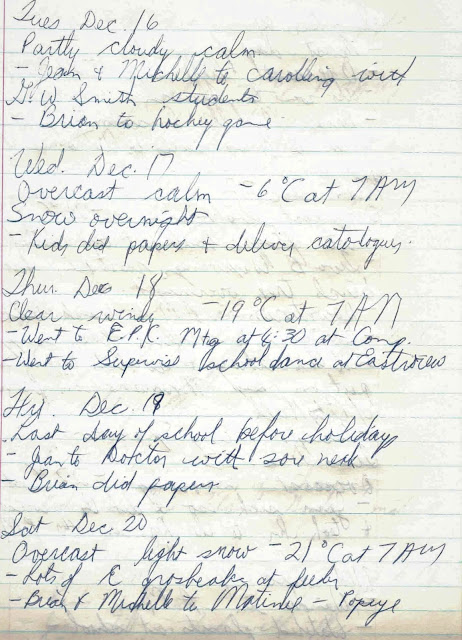 Tues Dec. 16
Partly cloudy calm
- Jean & Michelle to carolling with
G. W. Smith students
- Brian to hockey game
Wed. Dec. 17
Overcast calm -6°C at 7 AM
Snow overnight
- Kids did papers + deliver catologues.
Thur. Dec 18
Clear windy -19°C at 7 AM
- Went to E.P.K. Mtg at 4:30 at Comp.
- Went to Supervise school dance at Eastview
Fri. Dec. 19
Last day of school before holidays
- Jean to Doctor with sore neck
- Brian did papers
Sat Dec 20
Overcast light snow -21°C at 7 AM
- Lots of E grosbeaks at feeder
- Brian & Michelle to Matinee - Popeye